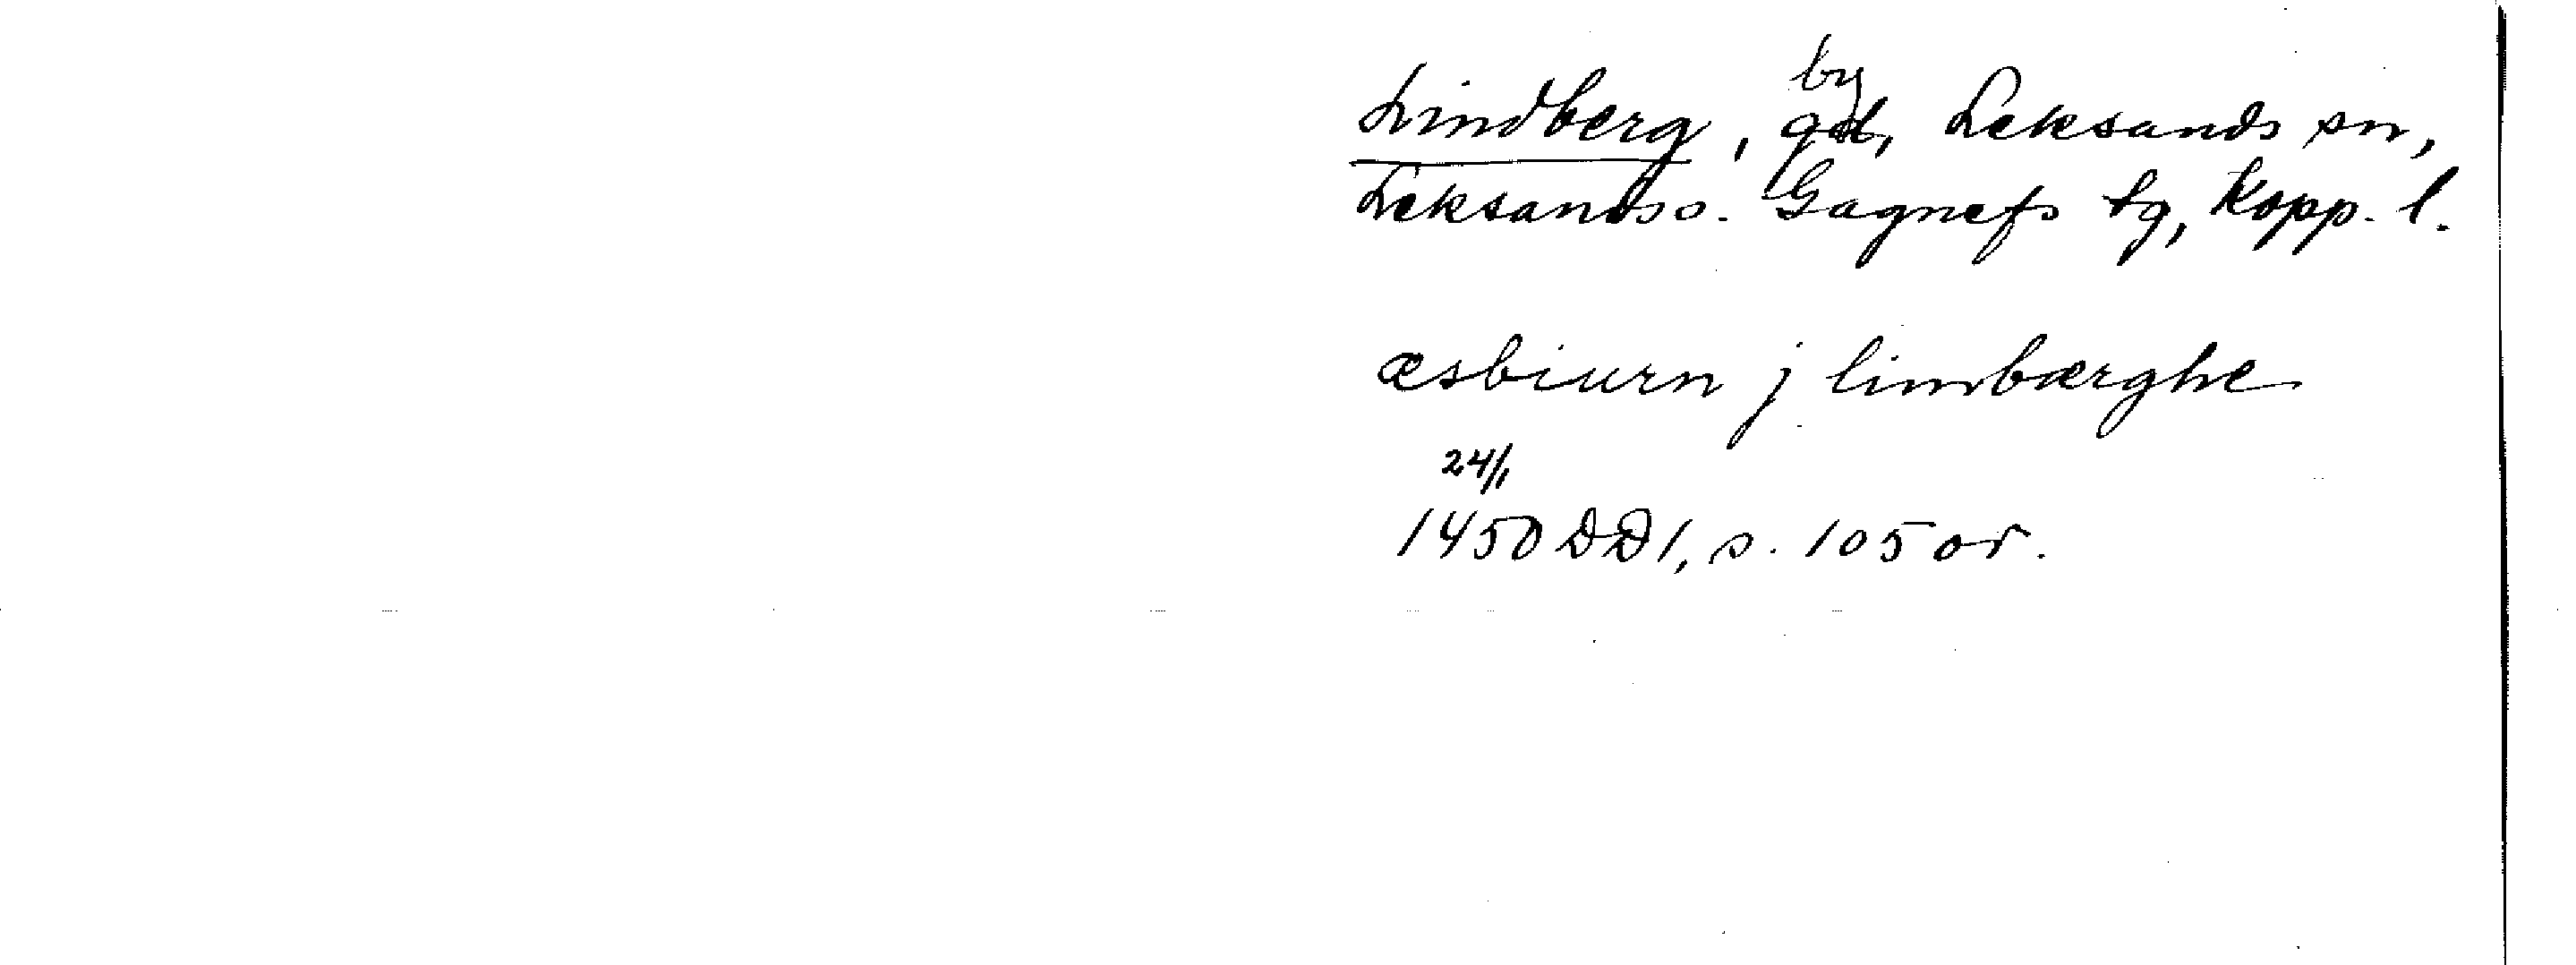 by
Lindberg, gd, Leksands sn,
Leksands o. Gagnefs tg, Kopp. l.
æsbiurn j limbærghe
24/1
1450 DD1, s. 105 or.